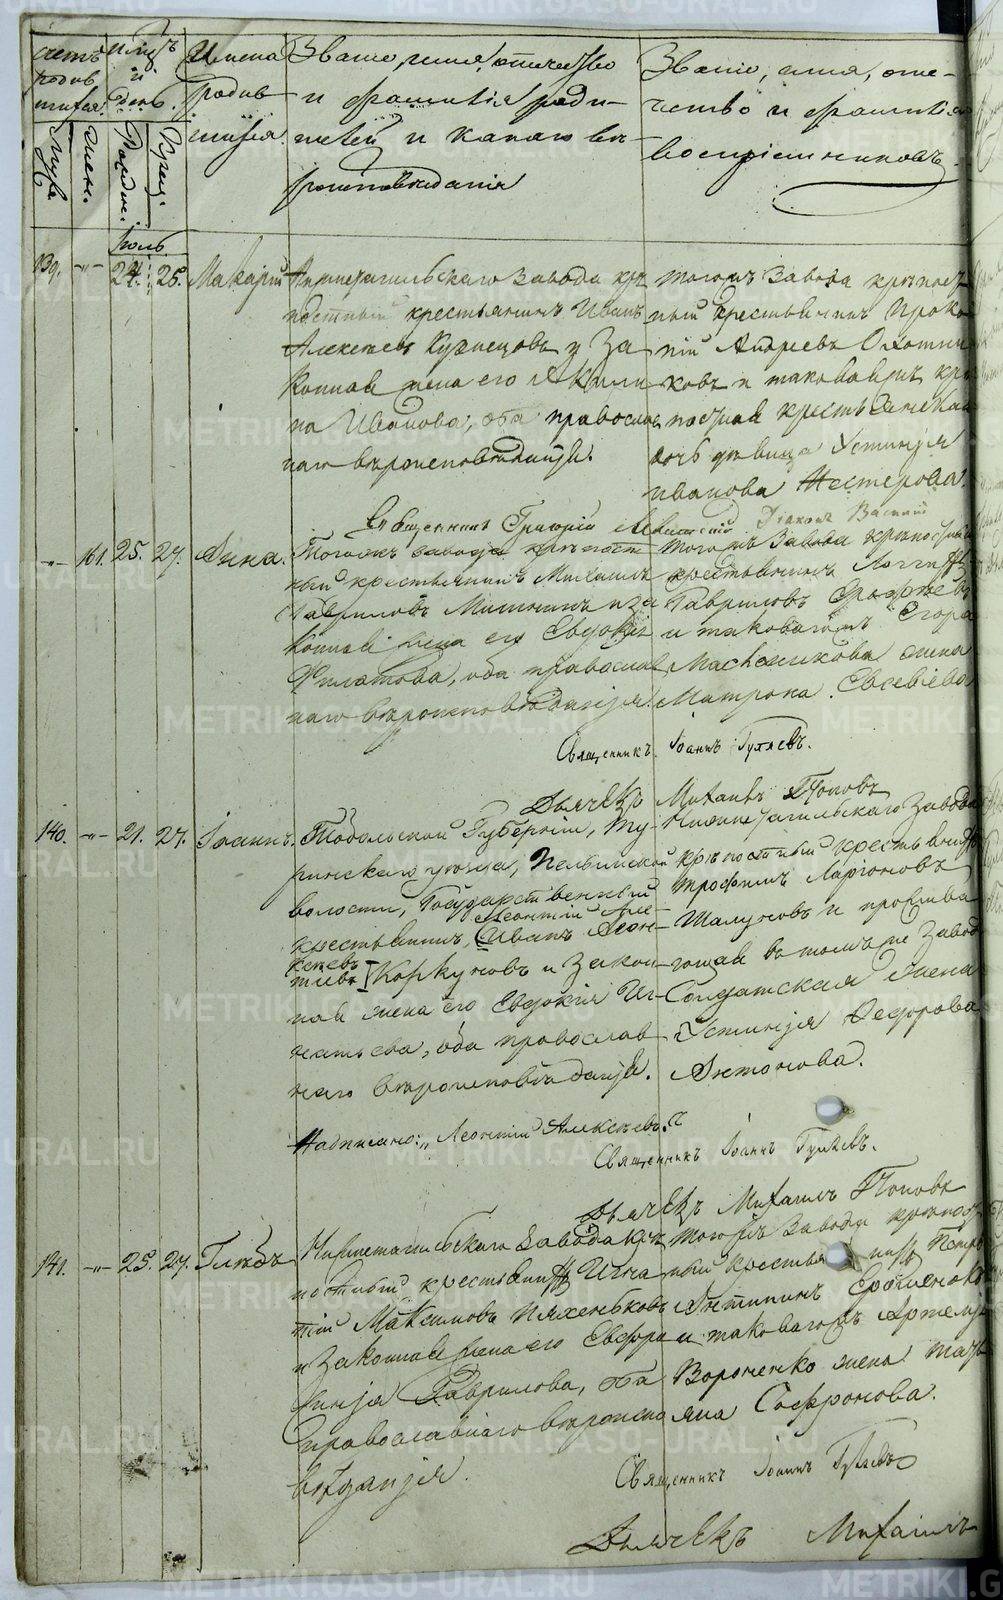 Счетъ родив
шихся.
Муж.
Жен.
Мѣс. и день.
Рожден.
Крещ.
Имена
родив
шихся.
Званіе, имя, отчество
и фамилія роди-
телей и какого вѣ-
роисповѣданія
Званіе, имя, оте-
чество и фамилія
воспріемниковъ.
Іюль
139. -"- 24. 25. Макарій
Нижнетагильскаго Завода крѣ
постный крестьянинъ Иванъ
Алексѣевъ Кузнецовъ и За
конная жена его Акили
на Иванова, оба православ
наго вѣроисповѣданія.
тогожъ Завода крѣпост
ный крестьянинъ Проко
пій Андреевъ Охотни
ковъ и таковагожъ крѣ
постная крестьянская
дочь дѣвица Устинія
Иванова Нестерова.
Священникъ Григорій Діаконъ Василій
-"- 161. 25. 27. Анна.
Тогожъ завода крѣпост
ный крестьянинъ Михаилъ
Гавриловъ Мишинъ и за
конная жена его Евдокія
Филатова, оба православ
наго вѣроисповѣданія.
тогожъ Завода крѣпостный
крестьянинъ Логгинъ
Гавриловъ
и таковагожъ Егора
Масленикова жена
Матрона Евсевіева
Священникъ Іоаннъ Гуляевъ.
Дьячекъ Михаилъ Поповъ
140. -"- 21. 27. Іоаннъ.
Тобольской Губерніи, Ту-
ринскаго уѣзда, Пелымской
волости, Государственный
Леонтій Але
крестьянинъ, Иванъ Леон-
ксѣевъ
тьевъ Коркуновъ и Закон-
ная жена его Евдокія Иг-
натьева, оба православ
наго вѣроисповѣданія.
Нижнетагильскаго Завода
крѣпостный крестьянинъ
Трофимъ Ларіоновъ
Шалуновъ и прожива
ющая въ томъ же Заводѣ
Солдатская жена
Устинія Федорова
Антонова.
Надписано: "Леонтій Алексѣевъ."
Священникъ Іоаннъ Гуляевъ.
Дьячекъ Михаилъ Поповъ
141. -"- 25. 27. Глѣбъ
Нижнетагильскаго Завода крѣ
постный крестьянинъ Игна
тій Максимовъ Пяхеньковъ
и Законная жена его Евфро
синія Гаврилова, оба
православнаго вѣроиспо
вѣданія.
тогожъ Завода крѣпост
ный крестьянинъ Петръ
Антипинъ
и таковагожъ Артемія
Вороненко жена Тать
яна Софронова.
Священникъ Іоаннъ Гуляевъ
Дьячекъ Михаилъ
METRIKI.GASO-URAL.RU